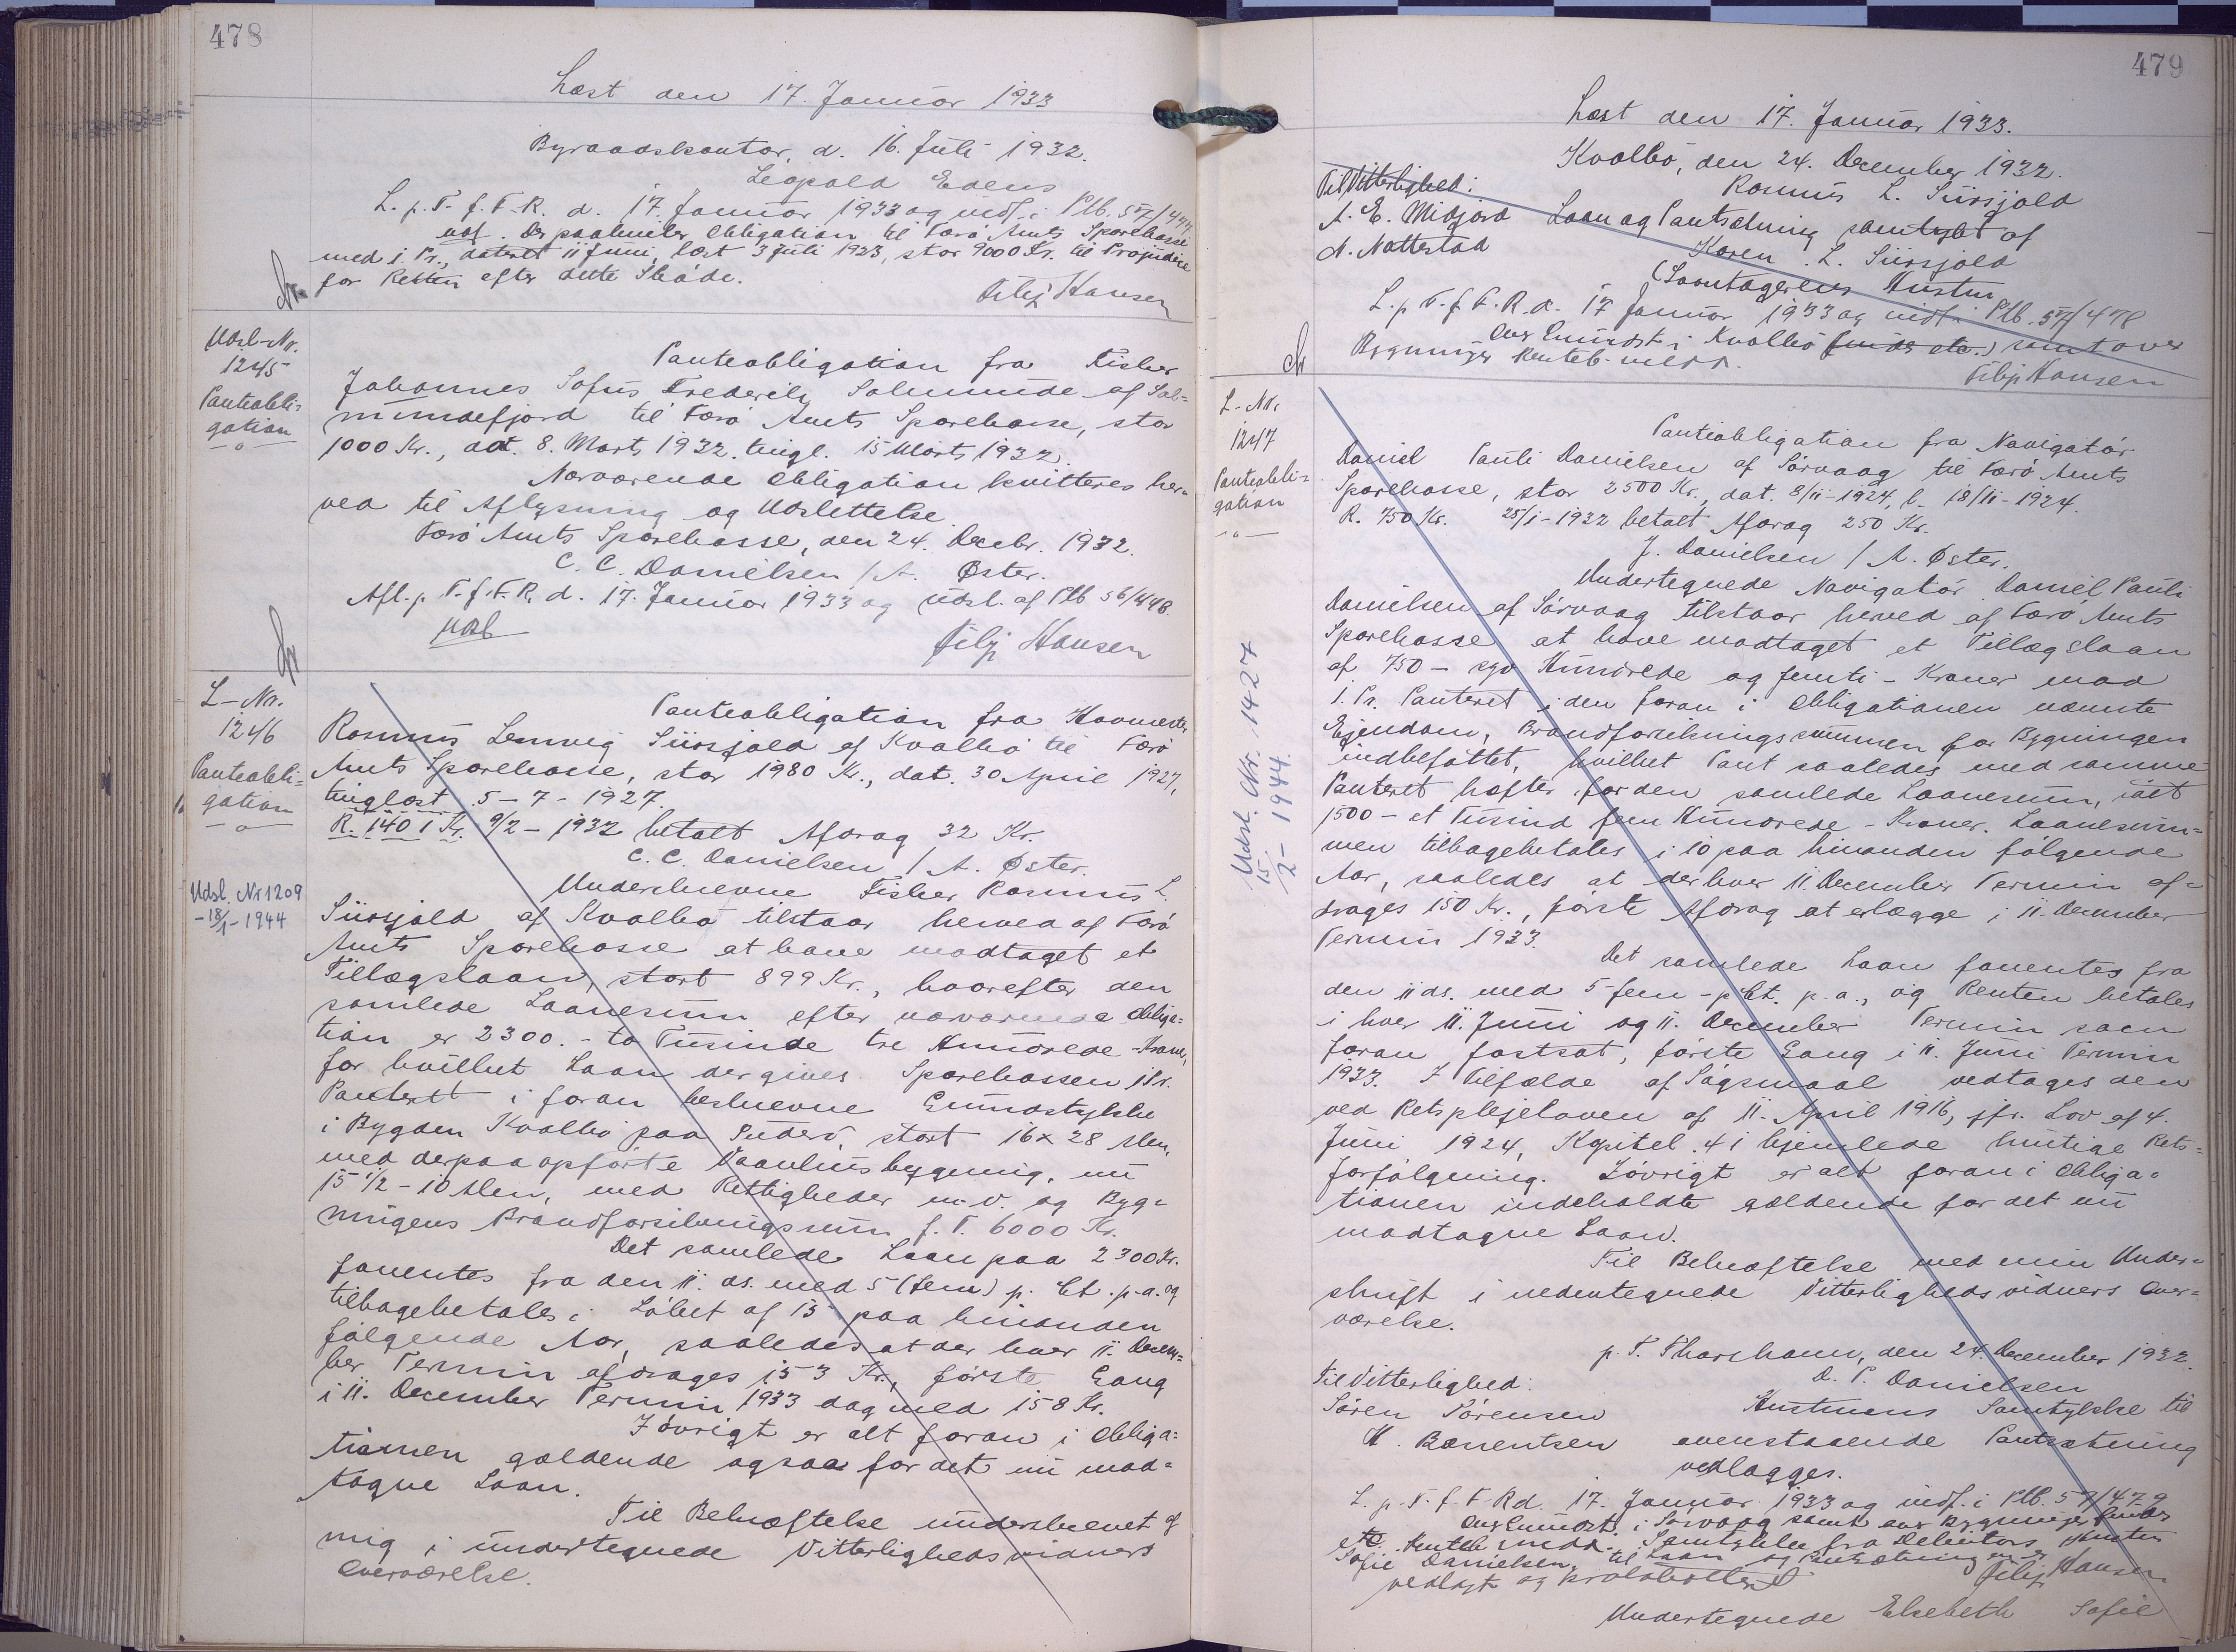 478
Læst den 17. Januar 1933
Byraadskontor, d. 16. Juli 1932.
Leopold Edens
L. p. T. f. F. R. d. 17. Januar 1933 og indf. i Ptb. 57/477
Der paahviler Obligation til Færø Amts Sparekasse
med 1. Pr., dateret 11 Juni, læst 3 Juli 1923, stor 9000 Kr. til Præjudice
for Retten efter dette Skøde.
Filip Hansen
Udsl-Nr.
1245
Panteobli-
gation
Panteobligation fra Fisker
Johannes Sofus Frederik Salmunde af Sal=
mundefjord til Færø Amts Sparekasse, stor
1000 Kr., dat. 8. Marts 1932. tingl. 15 Marts 1932.
Nærværende Obligation kvitteres her=
ved til Aflysning og Udslettelse.
Færø Amts Sparekasse, den 24. Decbr. 1932.
C. C. Danielsen / A. Øster.
Afl. p. T. f. F. R. d. 17. Januar 1933 og udsl. af Ptb 56/448.
udsl
Filip Hansen
L-Nr.
1246
Panteobli=
gation
Udsl. Nr 1209
-18/1-1944
Panteobligation fra Havnemester
Rasmus Lemvig Siirsjald af Kvalbø til Færø
Amts Sparekasse, stor 1980 Kr., dat. 30 April 1927,
tinglæst 5-7-1927.
R. 1401 Kr. 9/2-1932 betalt Afdrag 32 Kr.
C. C. Danielsen / A. Øster.
Underskrevne Fisker Rasmus L.
Siirsjald af Kvalbø tilstaar herved af Færø
Amts Sparekasse at have modtaget et
Tillægslaan, stort 899 Kr., hvorefter den
samlede Laanesum efter nærværende Obliga=
tion er 2300. - to Tusinde tre Hundrede - Kroner,
for hvilket Laan der gives Sparekassen 1 Pr.
Panteret i foran beskrevne Grundstykke
i Bygden Kvalbø paa Suderø, stort 16 x 28 Alen,
med derpaa opførte Vaanhusbygning, nu
15 1/2 - 10 Alen, med Rettigheder m.v. og Byg=
ningens Brandforsikringssum f. T. 6000 Kr.
Det samlede Laan paa 2300 Kr.
forrentes fra den 11. ds. med 5 (fem) p. Ct. p. a. og
tilbagebetales i Løbet af 15 paa hinanden
følgende Aar, saaledes at der hver 11. Decem=
ber Termin afdrages 153 Kr., første Gang
i 11. December Termin 1933 dog med 158 Kr.
Iøvrigt er alt foran i Obliga=
tionen gældende ogsaa for det nu mod=
tagne Laan.
Til Bekræftelse underskrevet af
mig i undertegnede Vitterlighedsvidners
Overværelse.
479
Læst den 17. Januar 1933.
Kvalbø, den 24. December 1932.
Rasmus L. Siirsjald
Til Vitterlighed:
A. E. Midjord Laan og Pantsætning samtykt af
N. Nattestad Karen L. Siirsjald
(Laantagerens Hustru
L. p. T. f. F. R. d. 17 Januar 1933 og indf. i Ptb. 57/478
ovr Grundst. i Kvalbø samt over
Bygninger Renteb.
Filip Hansen
L-Nr.
1247
Panteobli=
gation
Udsl. Nr. 1427
15/2-1944.
Panteobligation fra Navigatør
Daniel Pauli Danielsen af Sørvaag til Færø Amts
Sparekasse, stor 2500 Kr., dat. 8/11-1924, l. 18/11-1924.
R. 750 Kr. 25/1-1932 betalt Afdrag 250 Kr.
J. Danielsen / A. Øster.
Undertegnede Navigatør Daniel Pauli
Danielsen af Sørvaag tilstaar herved af Færø Amts
Sparekasse at have modtaget et Tillægslaan
af 750 - syv Hundrede og femti - Kroner mod
1. Pr. Panteret i den foran i Obligationen nævnte
Ejendom, Brandforsikringssummen for Bygningen
indbefattet, hvilket Pant saaledes med samme
Panteret hæfter for den samlede Laanesum, ialt
1500 - et Tusind fem Hundrede - Kroner. Laanesum=
men tilbagebetales i 10 paa hinanden følgende
Aar, saaledes at der hver 11. December Termin af=
drages 150 Kr., første Afdrag at erlægge i 11. December
Termin 1933.
Det samlede Laan forrentes fra
den 11 ds. med 5 fem - p Ct. p. a., og Renten betales
i hver 11. Juni og 11. December Termin som
foran fastsat, første Gang i 11. Juni Termin
1933. I Tilfælde af Søgsmaal vedtages den
ved Retsplejeloven af 11. April 1916, jfr. Lov af 4.
Juni 1924, Kapitel 41 hjemlede hurtige Rets=
forfølgning. Iøvrigt er alt foran i Obliga=
tionen indeholdte gældende for det nu
modtagne Laan.
Til Bekræftelse med min Under=
skrift i nedentegnede Vitterlighedsvidners Over=
værelse.
p. T. Thorshavn, den 24. December 1932.
Til Vitterlighed: D. P. Danielsen
Søren Sørensen Hustruens Samtykke til
H. Barentsen ovenstaaende Pantsætning
vedlægges.
L. p. T. f. F. R d. 17. Januar 1933 og indf. i Ptb. 57/479
ovr Grundst. i Sørvaag samt ovr Bygninger
Samtykke fra Debitors Hustru
Sofie Danielsen, til Laan og Pantsætning er
vedlagt og protokolleret
Filip Hansen
Undertegnede Elsebeth Sofie